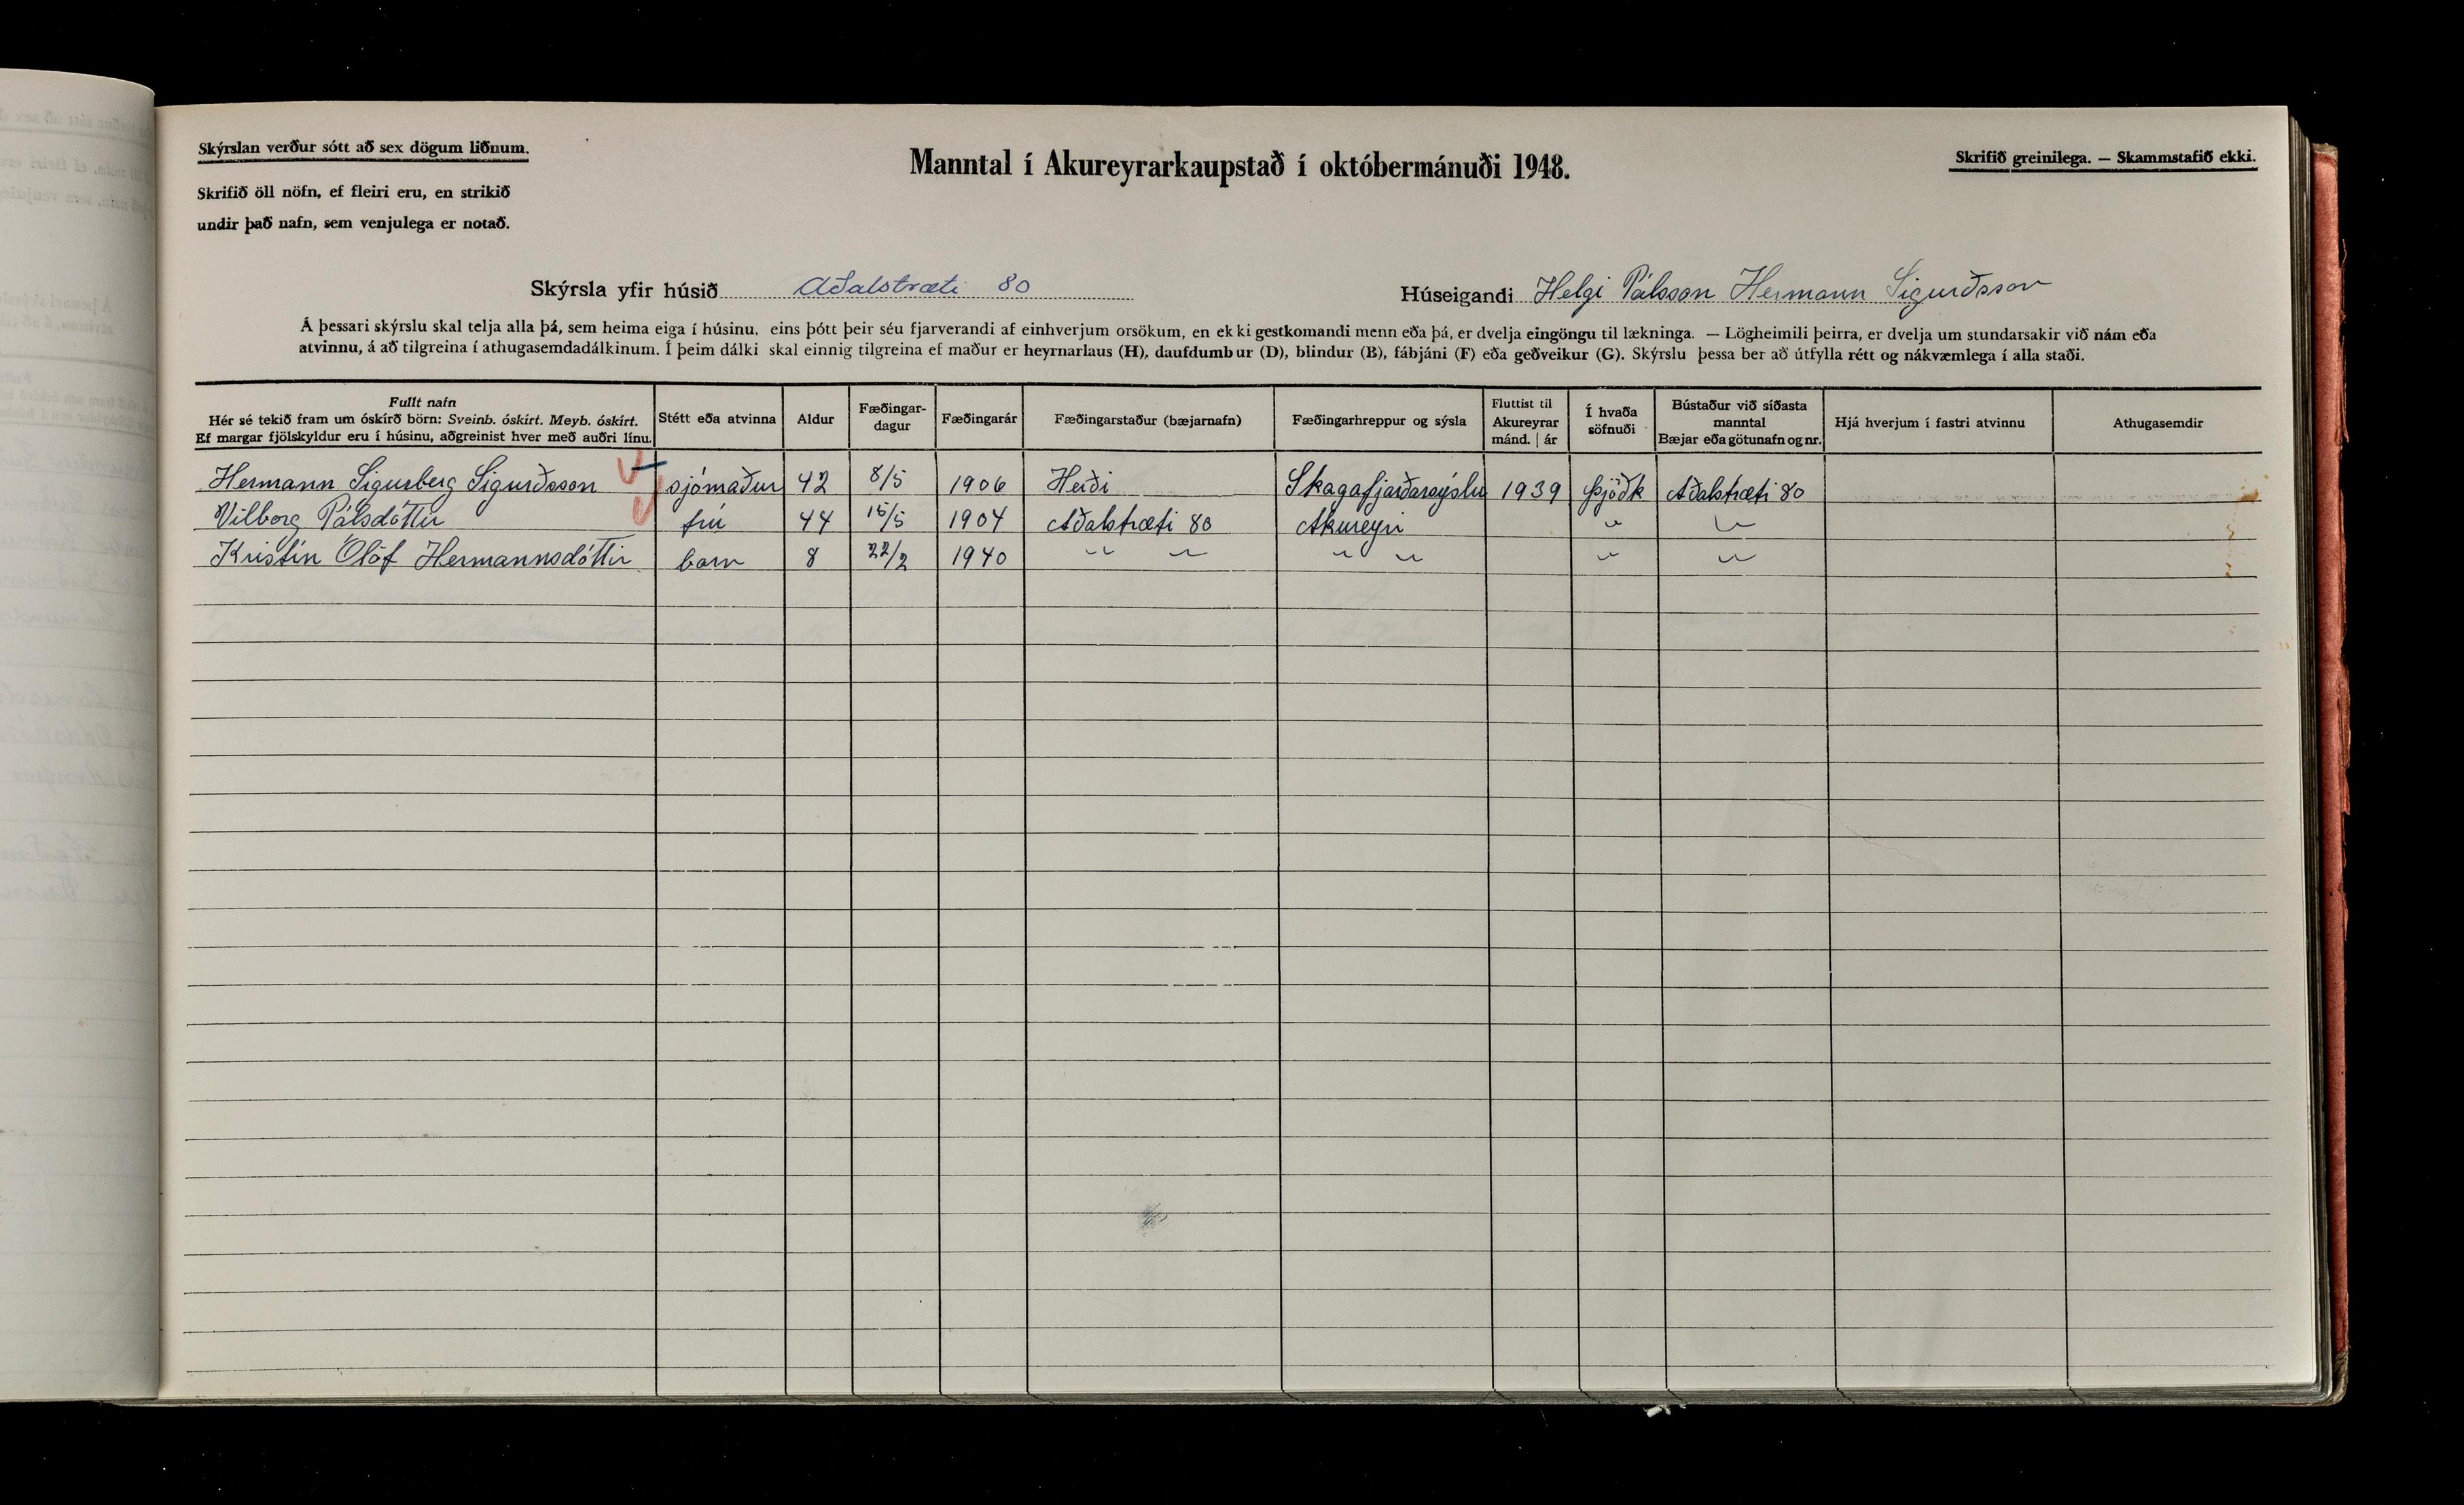 Skýrslan verður sótt að sex dögum liðnum.
Skrifið öll nöfn, ef fleiri eru, en strikið
undir það nafn, sem venjulega er notað.
Manntal í Akureyrarkaupstað í októbermánuði 1948.
Skrifið greinilega. — Skammstafið ekki.
Skýrsla yfir húsið Aðalstræti 80
Húseigandi Helgi Pálsson Hermann Sigurðsson
Á þessari skýrslu skal telja alla þá, sem heima eiga í húsinu, eins þótt þeir séu fjarverandi af einhverjum orsökum, en ekki gestkomandi menn eða þá, er dvelja eingöngu til lækninga. — Lögheimili þeirra, er dvelja um stundarsakir við nám eða
atvinnu, á að tilgreina í athugasemdadálkinum. Í þeim dálki skal einnig tilgreina ef maður er heyrnarlaus (H), daufdumbur (D), blindur (B), fábjáni (F) eða geðveikur (G). Skýrslu þessa ber að útfylla rétt og nákvæmlega í alla staði.
Fullt nafn
Hér sé tekið fram um óskírð börn: Sveinb. óskírt. Meyb. óskírt.
Ef margar fjölskyldur eru í húsinu, aðgreinist hver með auðri línu.
Stétt eða atvinna
Aldur
Fæðingar-
dagur
Fæðingarár
Fæðingarstaður (bæjarnafn)
Fæðingarhreppur og sýsla
Fluttist til
Akureyrar
mánd. | ár
Í hvaða
söfnuði
Bústaður við síðasta
manntal
Bæjar eða götunafn og nr.
Hjá hverjum í fastri atvinnu
Athugasemdir
Hermann Sigurberg Sigurðsson sjómaður 42 8/5 1906 Heiði Skagafjarðarsýslu 1939 Þjóðk Aðalstræti 80
Vilborg Pálsdóttir frú 44 15/5 1904 Aðalstræti 80 Akureyri " "
Kristín Ólöf Hermannsdóttir barn 8 22/2 1940 " " " " " "